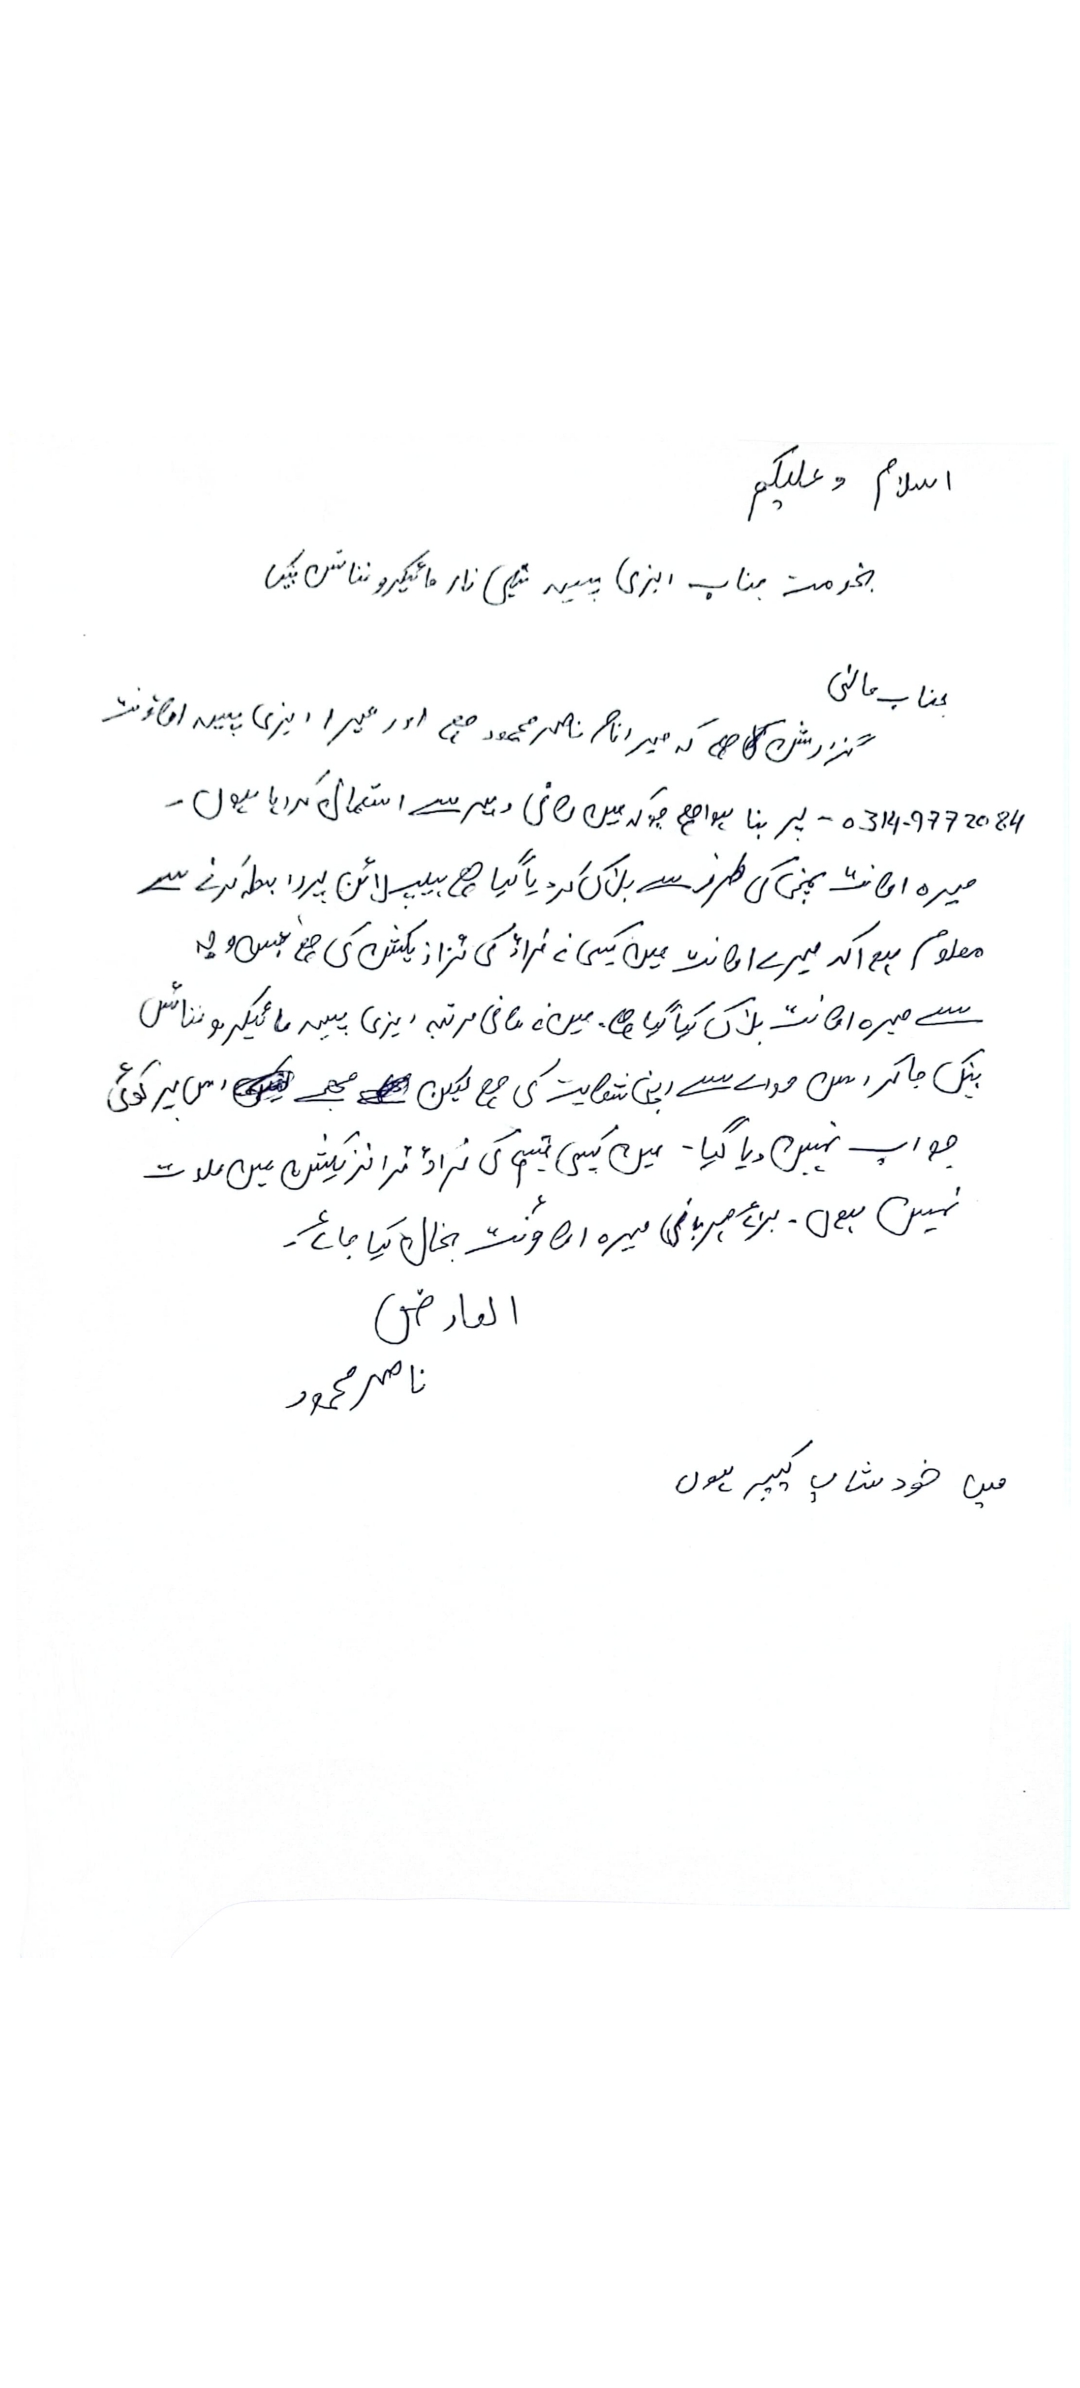 اسلام و علیکم
بخدمت جناب ایزی پیسہ ٹیلی نار مائیکرو فنانس بنک
جناب عالی
گزارش ہے کہ میرا نام ناصر محمود ہے اور میرا ایزی پیسہ اکاؤنٹ
0314-9772084 - پر بنا ہوا ہے جو کہ میں کافی دیر سے استمال کر رہا ہوں -
میرہ اکانٹ کمپنی کی طرف سے بلاک کر دیا گیا ہے ہیلپ لائن پر رابطہ کرنے سے
معلوم ہوا کہ میرے اکانٹ میں کسی نے فراڈ کی ٹرازیکشن کی ہے جس وجہ
سے میرہ اکانٹ بلاک کیا گیا ہے۔ میں نے کافی مرتبہ ایزی پیسہ مائیکرو فنانس
بنک جا کر اس حوالے سے اپنی شکایت کی ہے لیکن مجھے اس پر کوئی
جواب نہیں دیا گیا - میں کسی قسم کی فراڈ ٹرانزیکشن میں ملوث
نہیں ہوں - برائے مہربانی میرہ اکاؤنٹ بحال کیا جائے -
العارض
ناصر محمود
میں خود شاپ کیپر ہوں